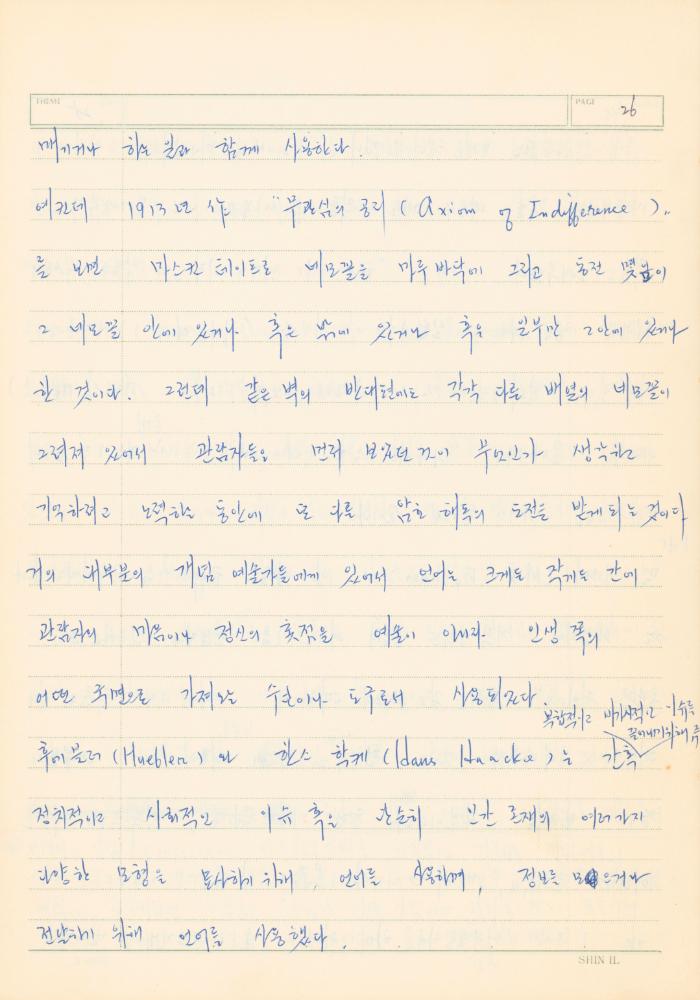 THEME
PAGE 26
매기거나 하는 불과 함께 사용한다.
예컨데 1973년 作 "무관심의 공리 (Axiom of Indifference)"
를 보면 마스킨 테이프로 네모꼴을 마루바닥에 그리고 동전 몇닢이
그 네모꼴 안에 있거나 혹은 밖에 있거나 혹은 일부만 그안에 있거나
한 것이다. 그런데 같은 벽의 반대편에도 각각 다른 배열의 네모꼴이
그려져 있어서 관람자들은 먼저 보았던 것이 무엇인가 생각하고
기억하려고 노력하는 동안에 또 다른 암호 해독의 도전을 받게 되는 것이다
거의 대부분의 개념 예술가들에게 있어서 언어는 크게든 작게든 간에
관람자의 마음이나 정신의 촛점을 예술이 아니라 인생 쪽의
어떤 측면으로 가져오는 수단이나 도구로서 사용되었다
복합적이고 비기사적인 이슈를
끌어내기 위해 쥬
후에블러 (Hueblen) 와 한스 학케 (Hans Haacke) 는 간혹
정치적이고 사회적인 이슈 혹은 단순히 인간 존재의 여러가지
다양한 모형을 묘사하기 위해, 언어를 사용하며, 정보를 모으거나
전달하기 위해 언어를 사용했다.
SHIN IL